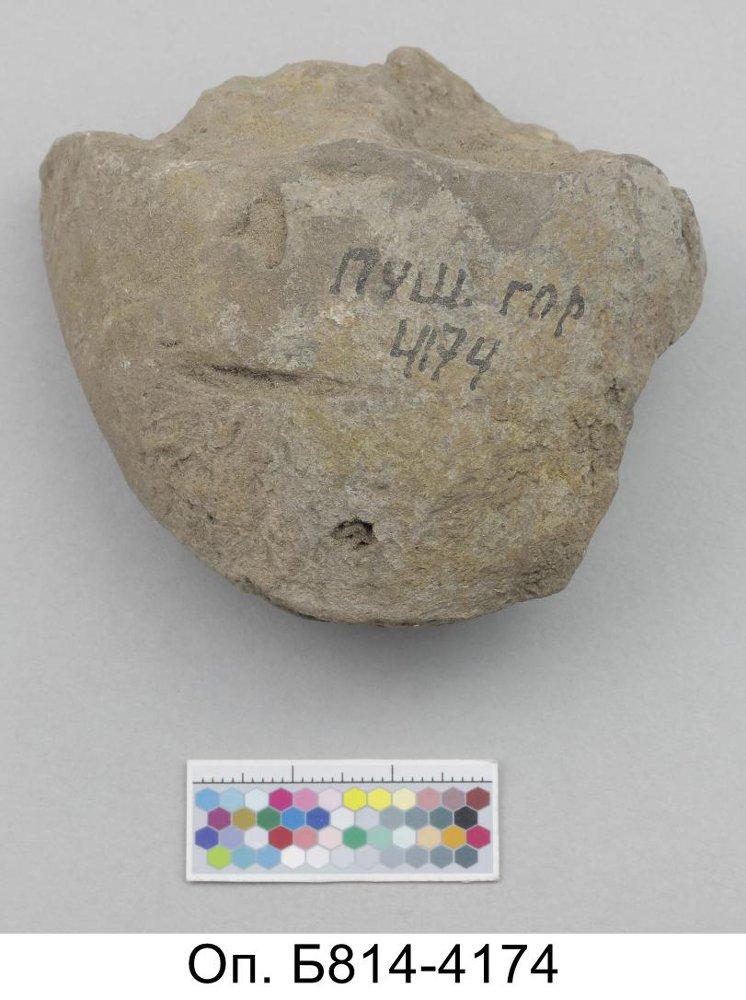 Пуш. гор
4174
Оп. Б814-4174